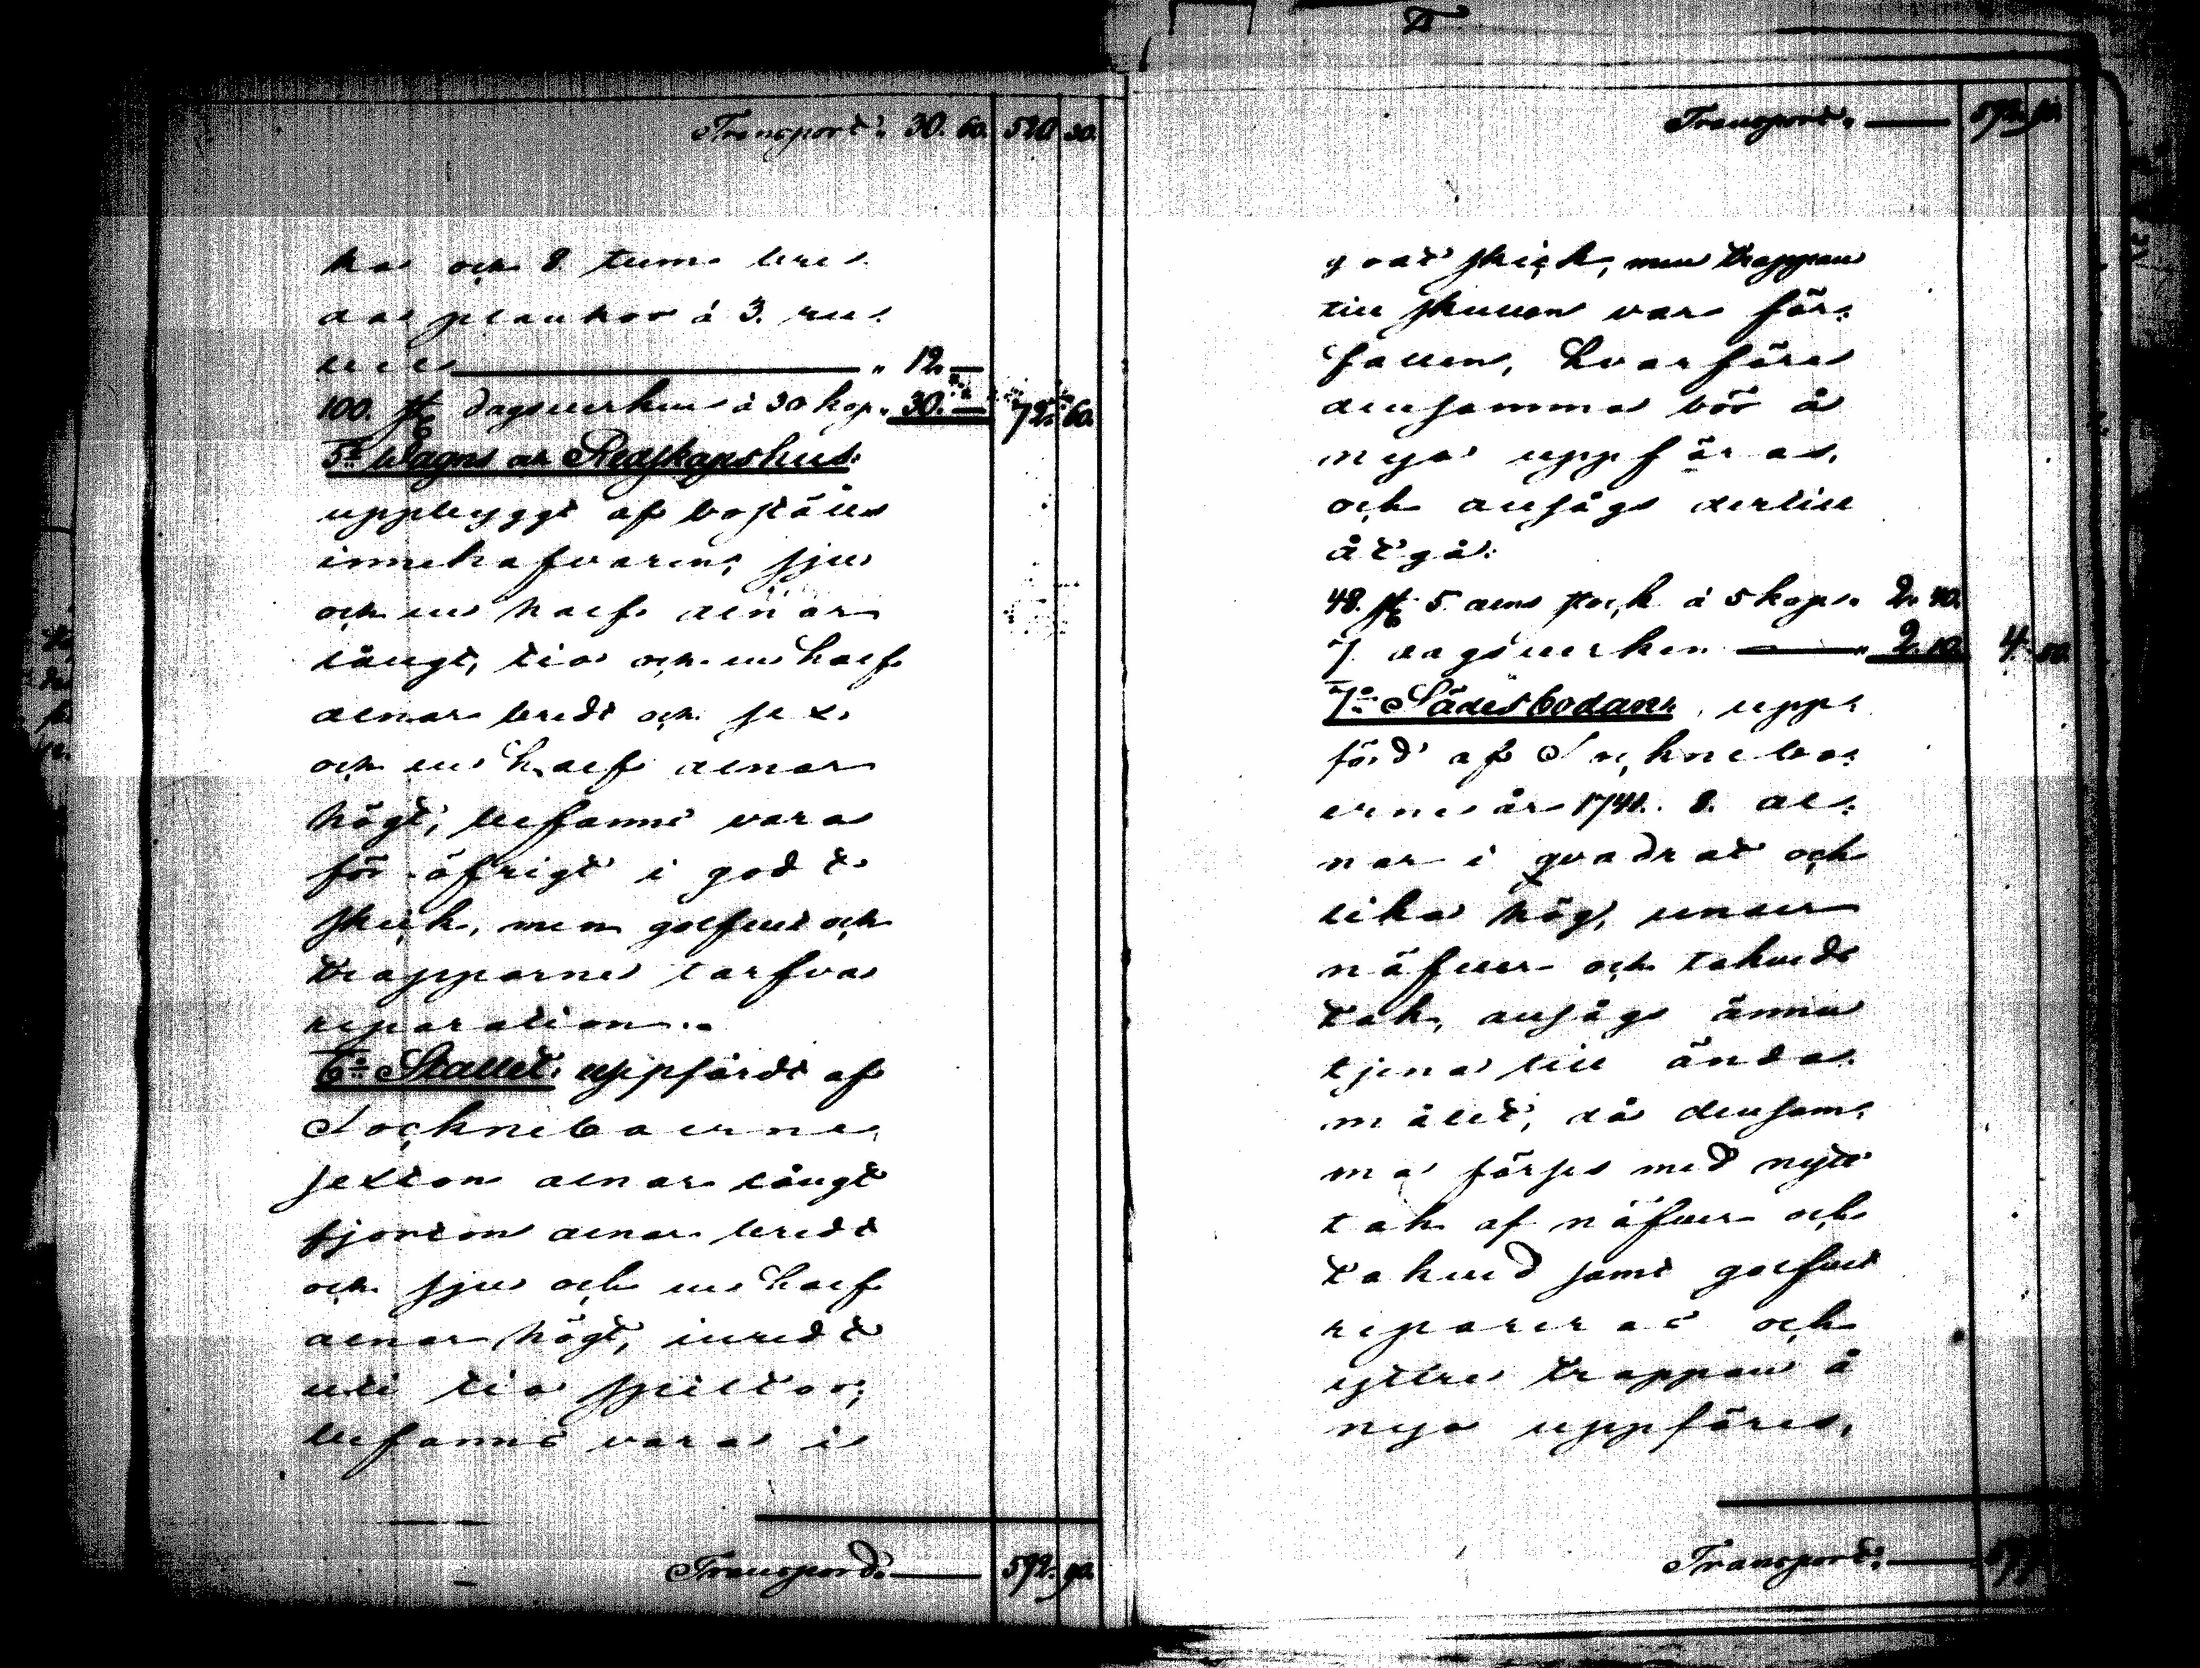 Transport: 30. 60. 520 30.
ka och 8. tum bre:
da plankor à 3. ru:
bel " 12. —
100. st dagsverken à 30 kop. 30. — 72. 60.
5:o Wagns och Redskapshus:
uppbyggt af boställs
innehafvaren, sju
och en half alnar
långt, tio och en half
alnar bredt och sex
och en half alnar
högt, befanns vara
för öfrigt i godt
skick, men golfvet och
trapporne tarfva
reparation.
6:o Stallet, uppfördt af
Sockneboerne,
sexton alnar långt
fjorton alnar bredt
och sju och en half
alnar högt, inredt
uti tio spiltor,
befanns vara i
Transport: 592. 90.
Transport: 592. 90.
godt skick, men trappan
till skullen var för:
fallen, hvarföre
densamma bör å
nyo uppföras,
och ansågs dertill
åtgå:
48. st 5. alns stock à 5 kop. 2. 40.
7. dagsverken " 2. 10. 4. 50.
7:o Sädesboden, upp:
förd af Socknebo:
erne år 1741. 8. al:
nar i quadrat och
lika hög, under
näfver och takveds
tak, ansågs ännu
tjena till ända:
målet, då densam:
ma förses med nytt
tak af näfver och
takved samt golfvet
repareras och
yttre trappan å
nyo uppföres,
Transport: